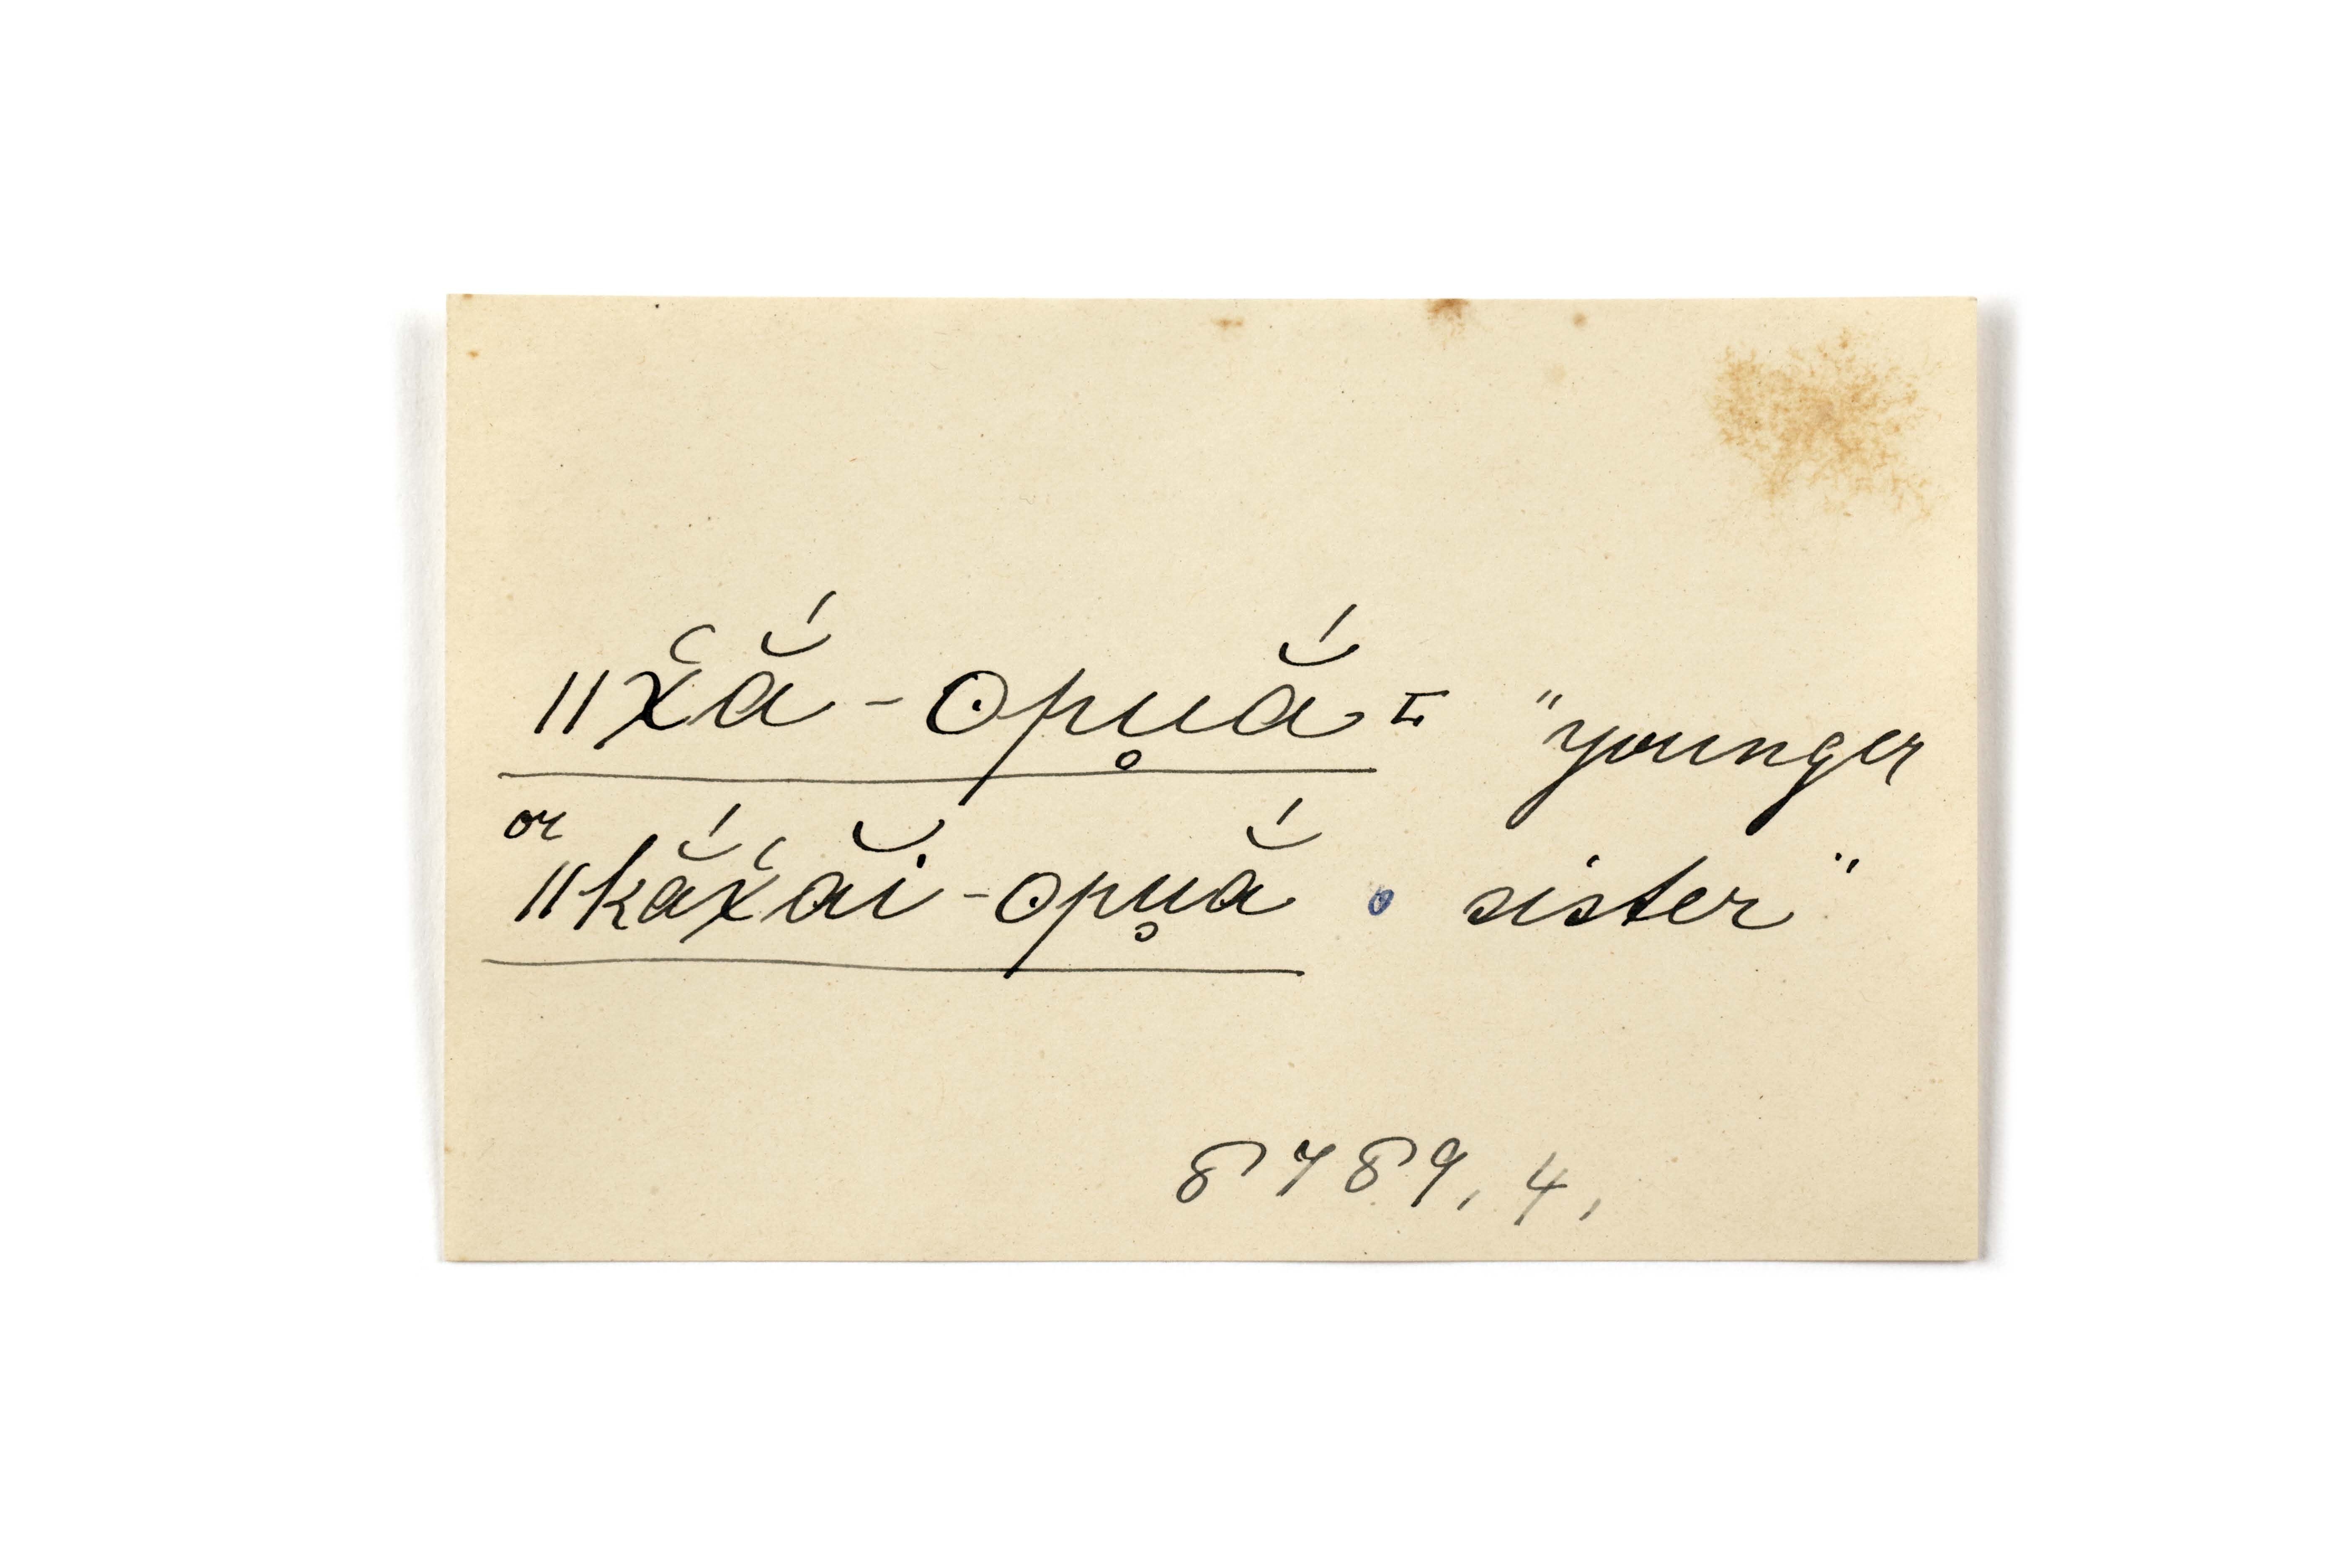 ǁx̔ắ-ʘpu̥ắ "younger
or
ǁkắx̔ăi-ʘpu̥ắ sister"
8789, 4,